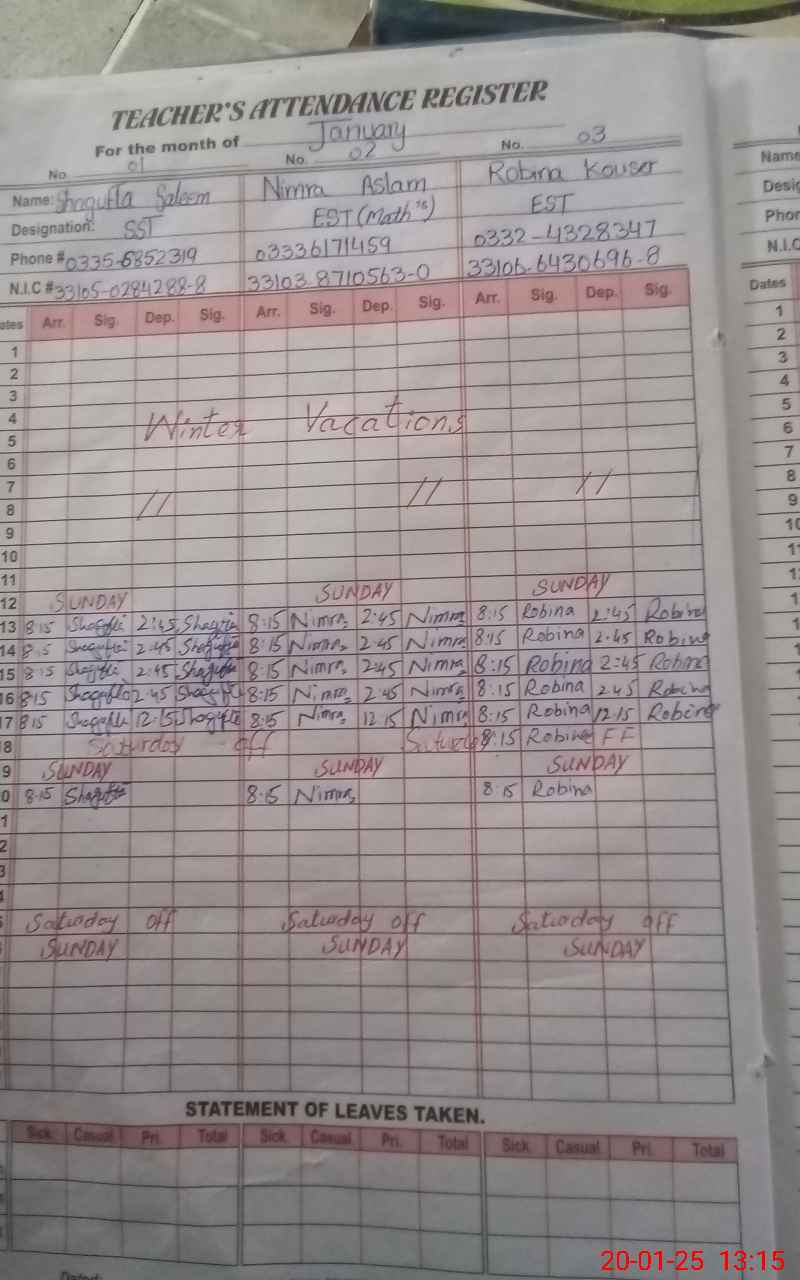 TEACHER'S ATTENDANCE REGISTER
For the month of January
No. 01 No. 02 No. 03
Name: Shagufta Saleem Nimra Aslam Robina Kouser Name
Designation: SST EST (Math's) EST Desig
Phone # 0335-6852319 03336171459 0332-4328347 Phor
N.I.C # 33105-0284288-8 33103-8710563-0 33106-6430696-8 N.I.C
ates Arr. Sig. Dep. Sig. Arr. Sig. Dep. Sig. Arr. Sig. Dep. Sig. Dates
1 1
2 2
3 3
4 Winter Vacations 4
5 5
6 6
7 7
8 // // // 8
9 9
10 10
11
12 SUNDAY SUNDAY SUNDAY
13 8:15 2:45 8:15 Nimra 2:45 Nimra 8:15 Robina 2:45 Robina
14 2:45 8:15 Nimra 2:45 Nimra 8:15 Robina 2:45 Robina
15 8:15 2:45 8:15 Nimra 2:45 Nimra 8:15 Robina 2:45 Robina
16 8:15 2:45 8:15 Nimra 2:45 Nimra 8:15 Robina 2:45 Robina
17 8:15 12:15 8:15 Nimra 12:15 Nimra 8:15 Robina 12:15 Robina
8 Saturday off 8:15 Robina FF
9 SUNDAY SUNDAY SUNDAY
0 8:15 8:15 Nimra 8:15 Robina
1
2
3
4
Saturday off Saturday off Saturday off
SUNDAY SUNDAY SUNDAY
STATEMENT OF LEAVES TAKEN.
Sick Casual Pri. Total Sick Casual Pri. Total Sick Casual Pri. Total
20-01-25 13:15